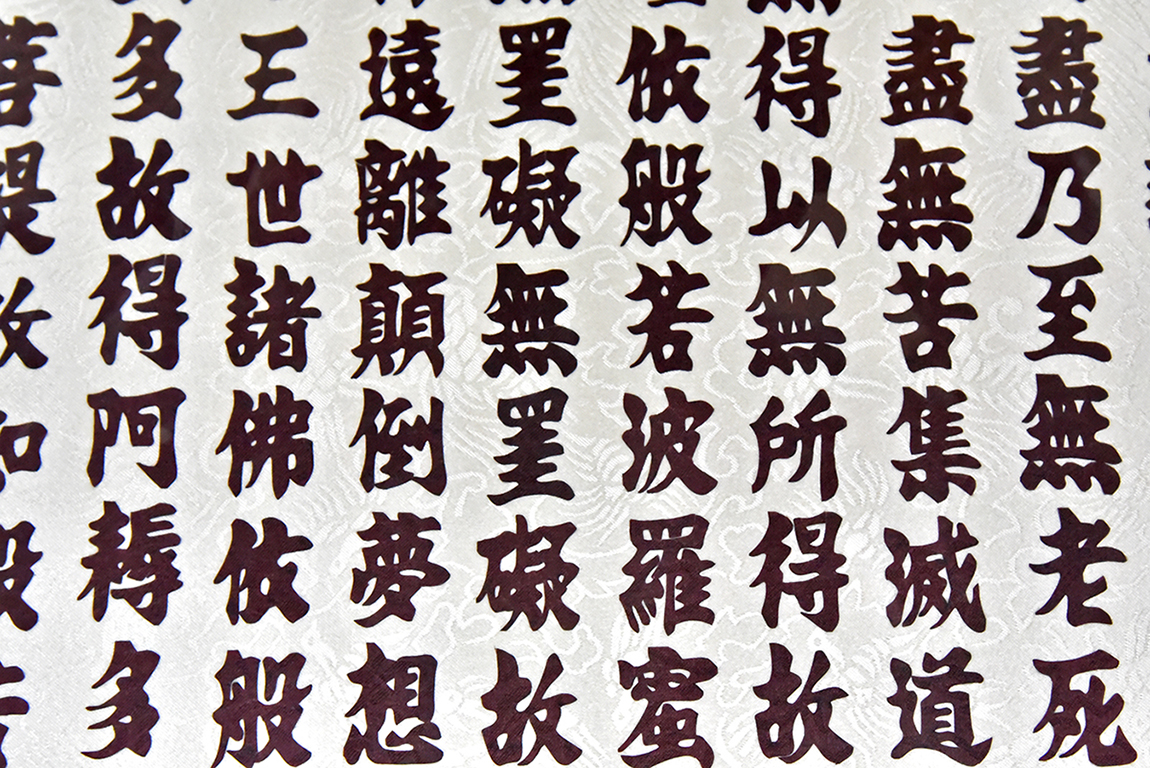 盡乃至無老死
盡無苦集滅道
得以無所得故
依般若波羅蜜
罣礙無罣礙故
遠離顛倒夢想
王世諸佛依般
多故得阿耨多
菩提故知般若